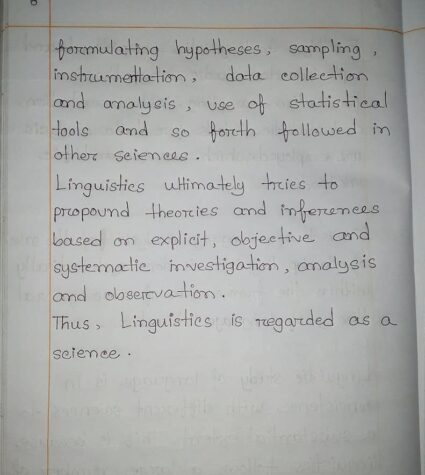 formulating hypotheses, sampling,
instrumentation, data collection
and analysis, use of statistical
tools and so forth followed in
other sciences.
Linguistics ultimately tries to
propound theories and inferences
based on explicit, objective and
systematic investigation, analysis
and observation.
Thus, Linguistics is regarded as a
science.